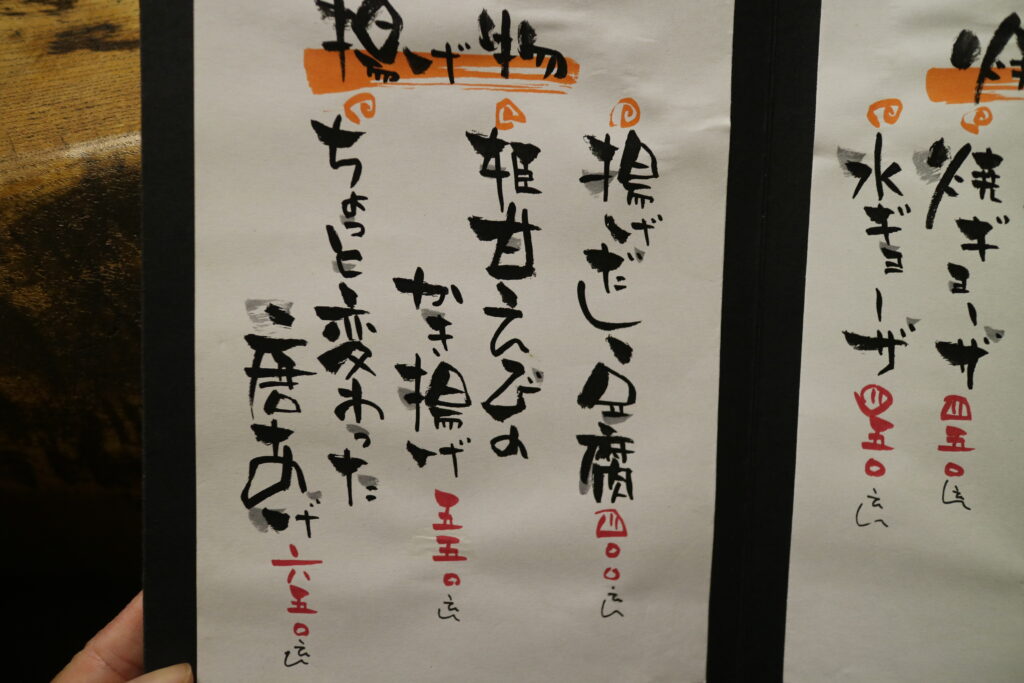 焼
焼ギョーザ 四五〇えん
水ギョーザ 四五〇えん
揚げ物
揚げだし豆腐 四〇〇えん
姫甘えびの
かき揚げ 五五〇えん
ちょっと変わった
唐あげ 六五〇えん